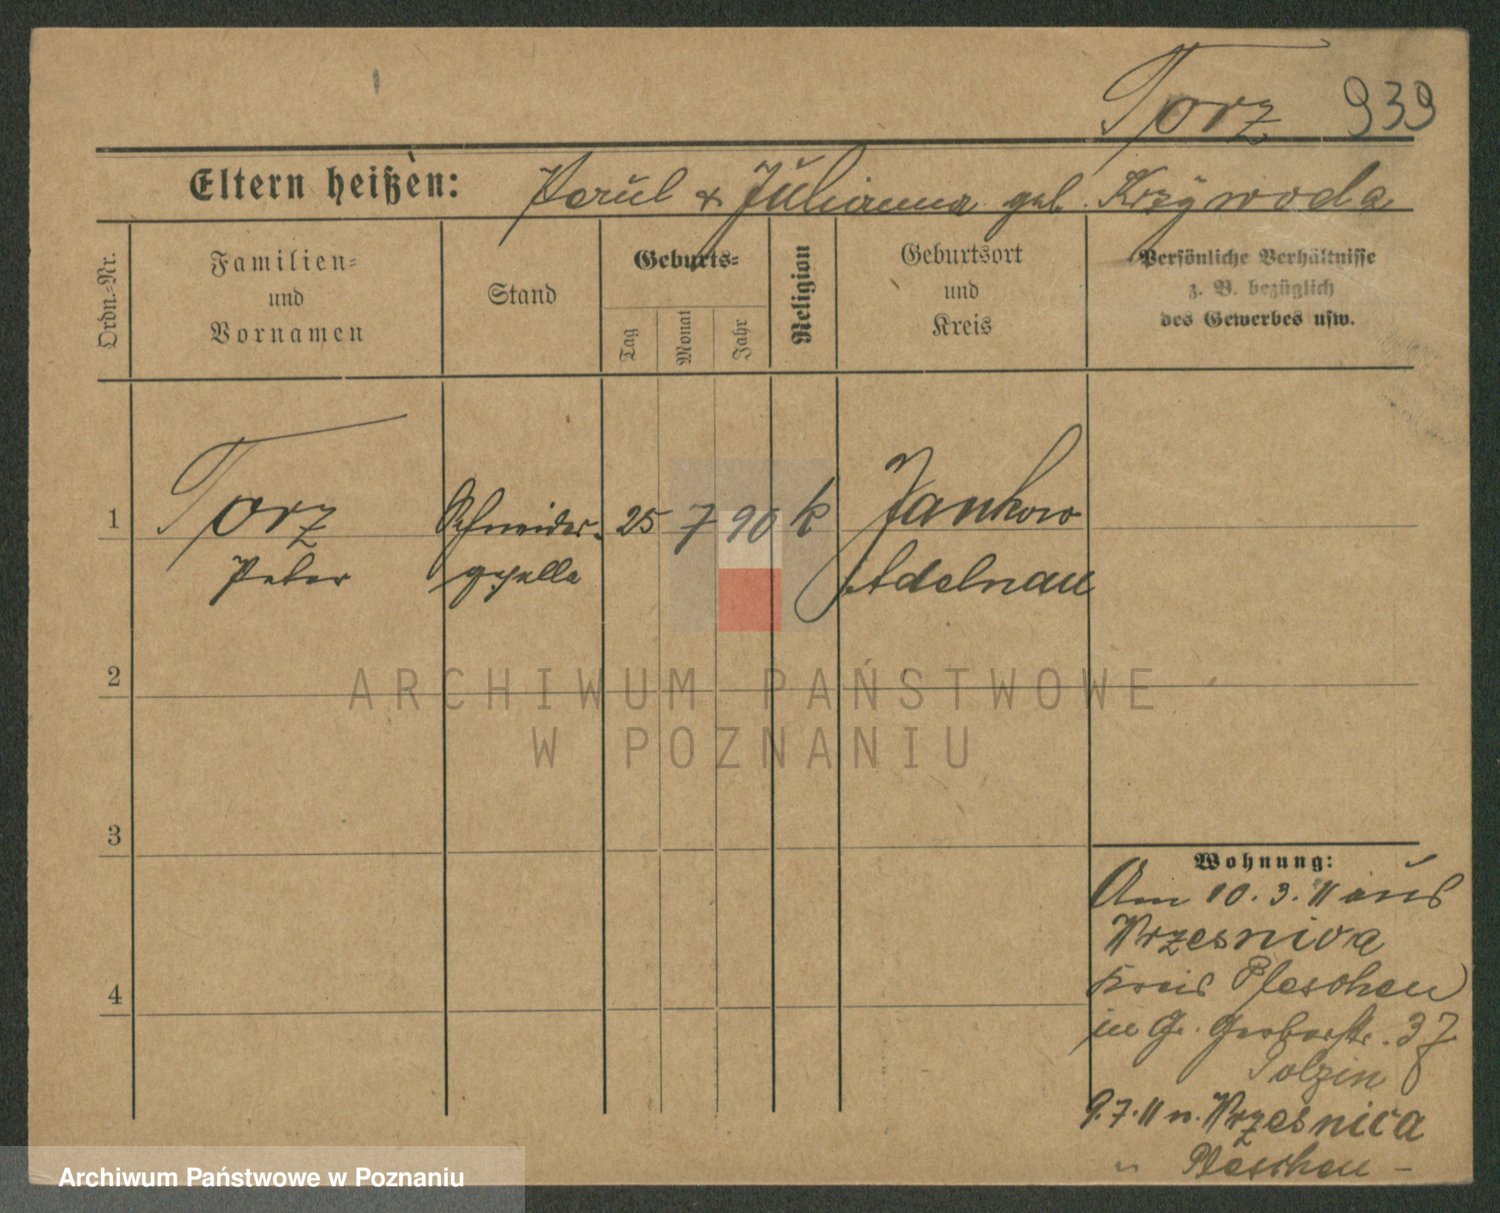 Torz 939
Eltern heißen: Paul & Julianna geb. Krzywoda
Ordn.-Nr.
Familien-
und
Vornamen
Stand
Geburts-
Tag
Monat
Jahr
Religion
Geburtsort
und
Kreis
Persönliche Verhältnisse
z. B. bezüglich
des Gewerbes usw.
1 Torz Schneider- 25 7 90 k Jankow
Peter geselle Adelnau
2
3
4
Wohnung:
Am 10.3.11 aus
Wrzesnica
Kreis Pleschen
in Gr. Gerberstr. 37
Polzin
9.7.11 n. Wrzesnica
" Pleschen -
ARCHIWUM PAŃSTWOWE
W POZNANIU
Archiwum Państwowe w Poznaniu